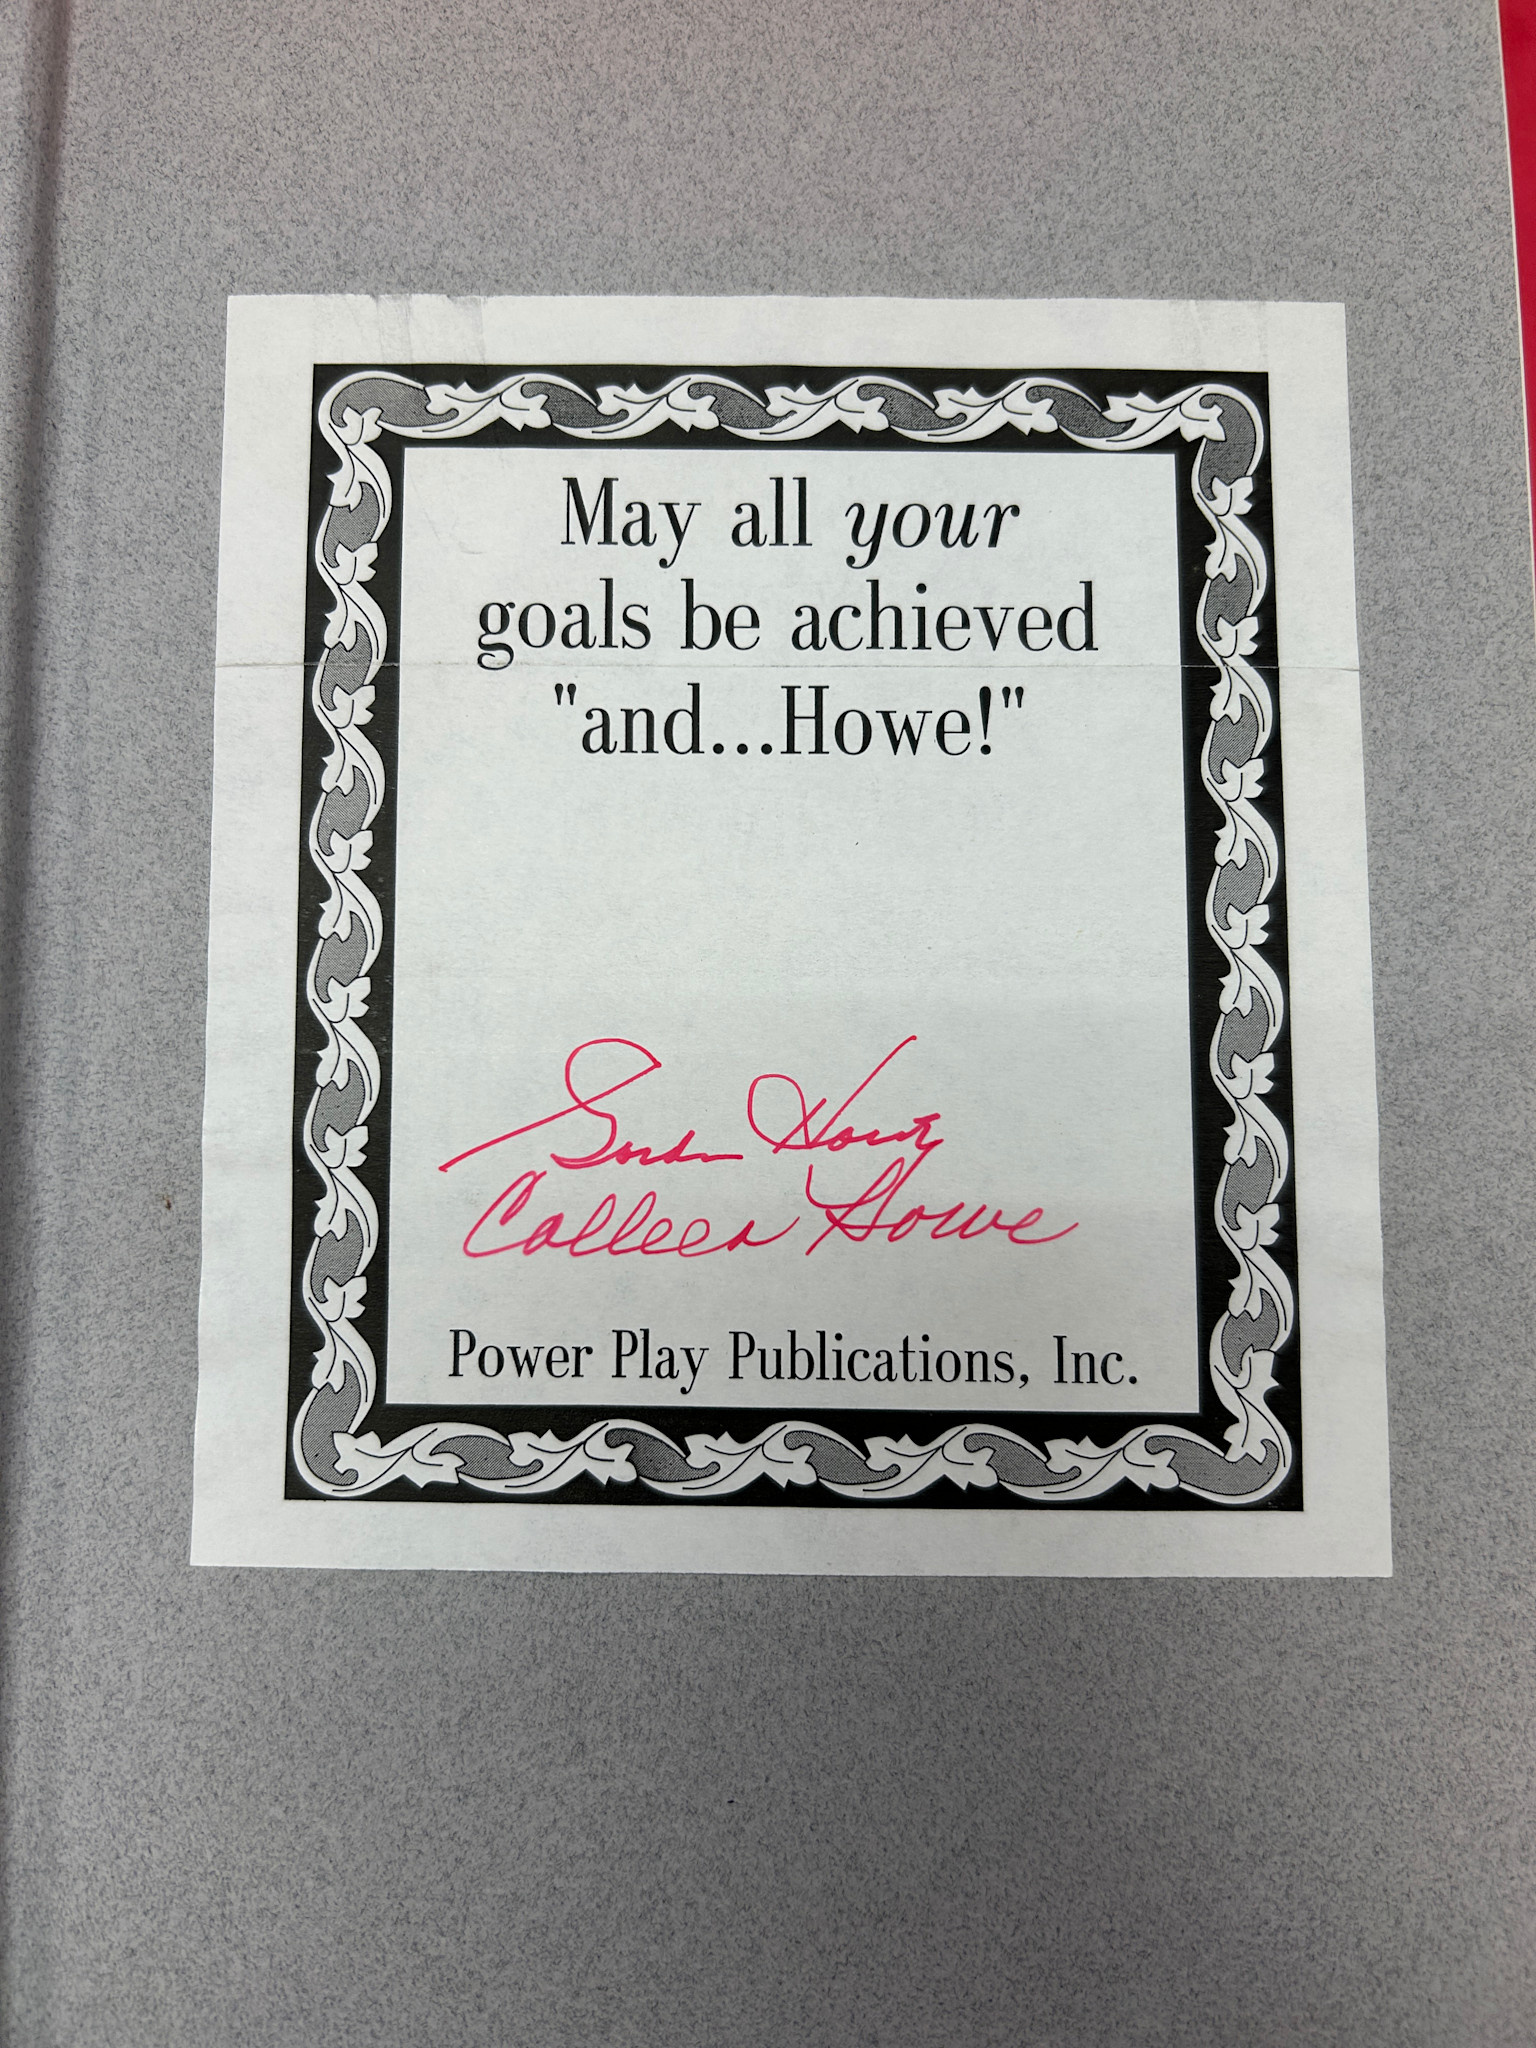 May all your
goals be achieved
"and...Howe!"
Gordie Howe
Colleen Howe
Power Play Publications, Inc.